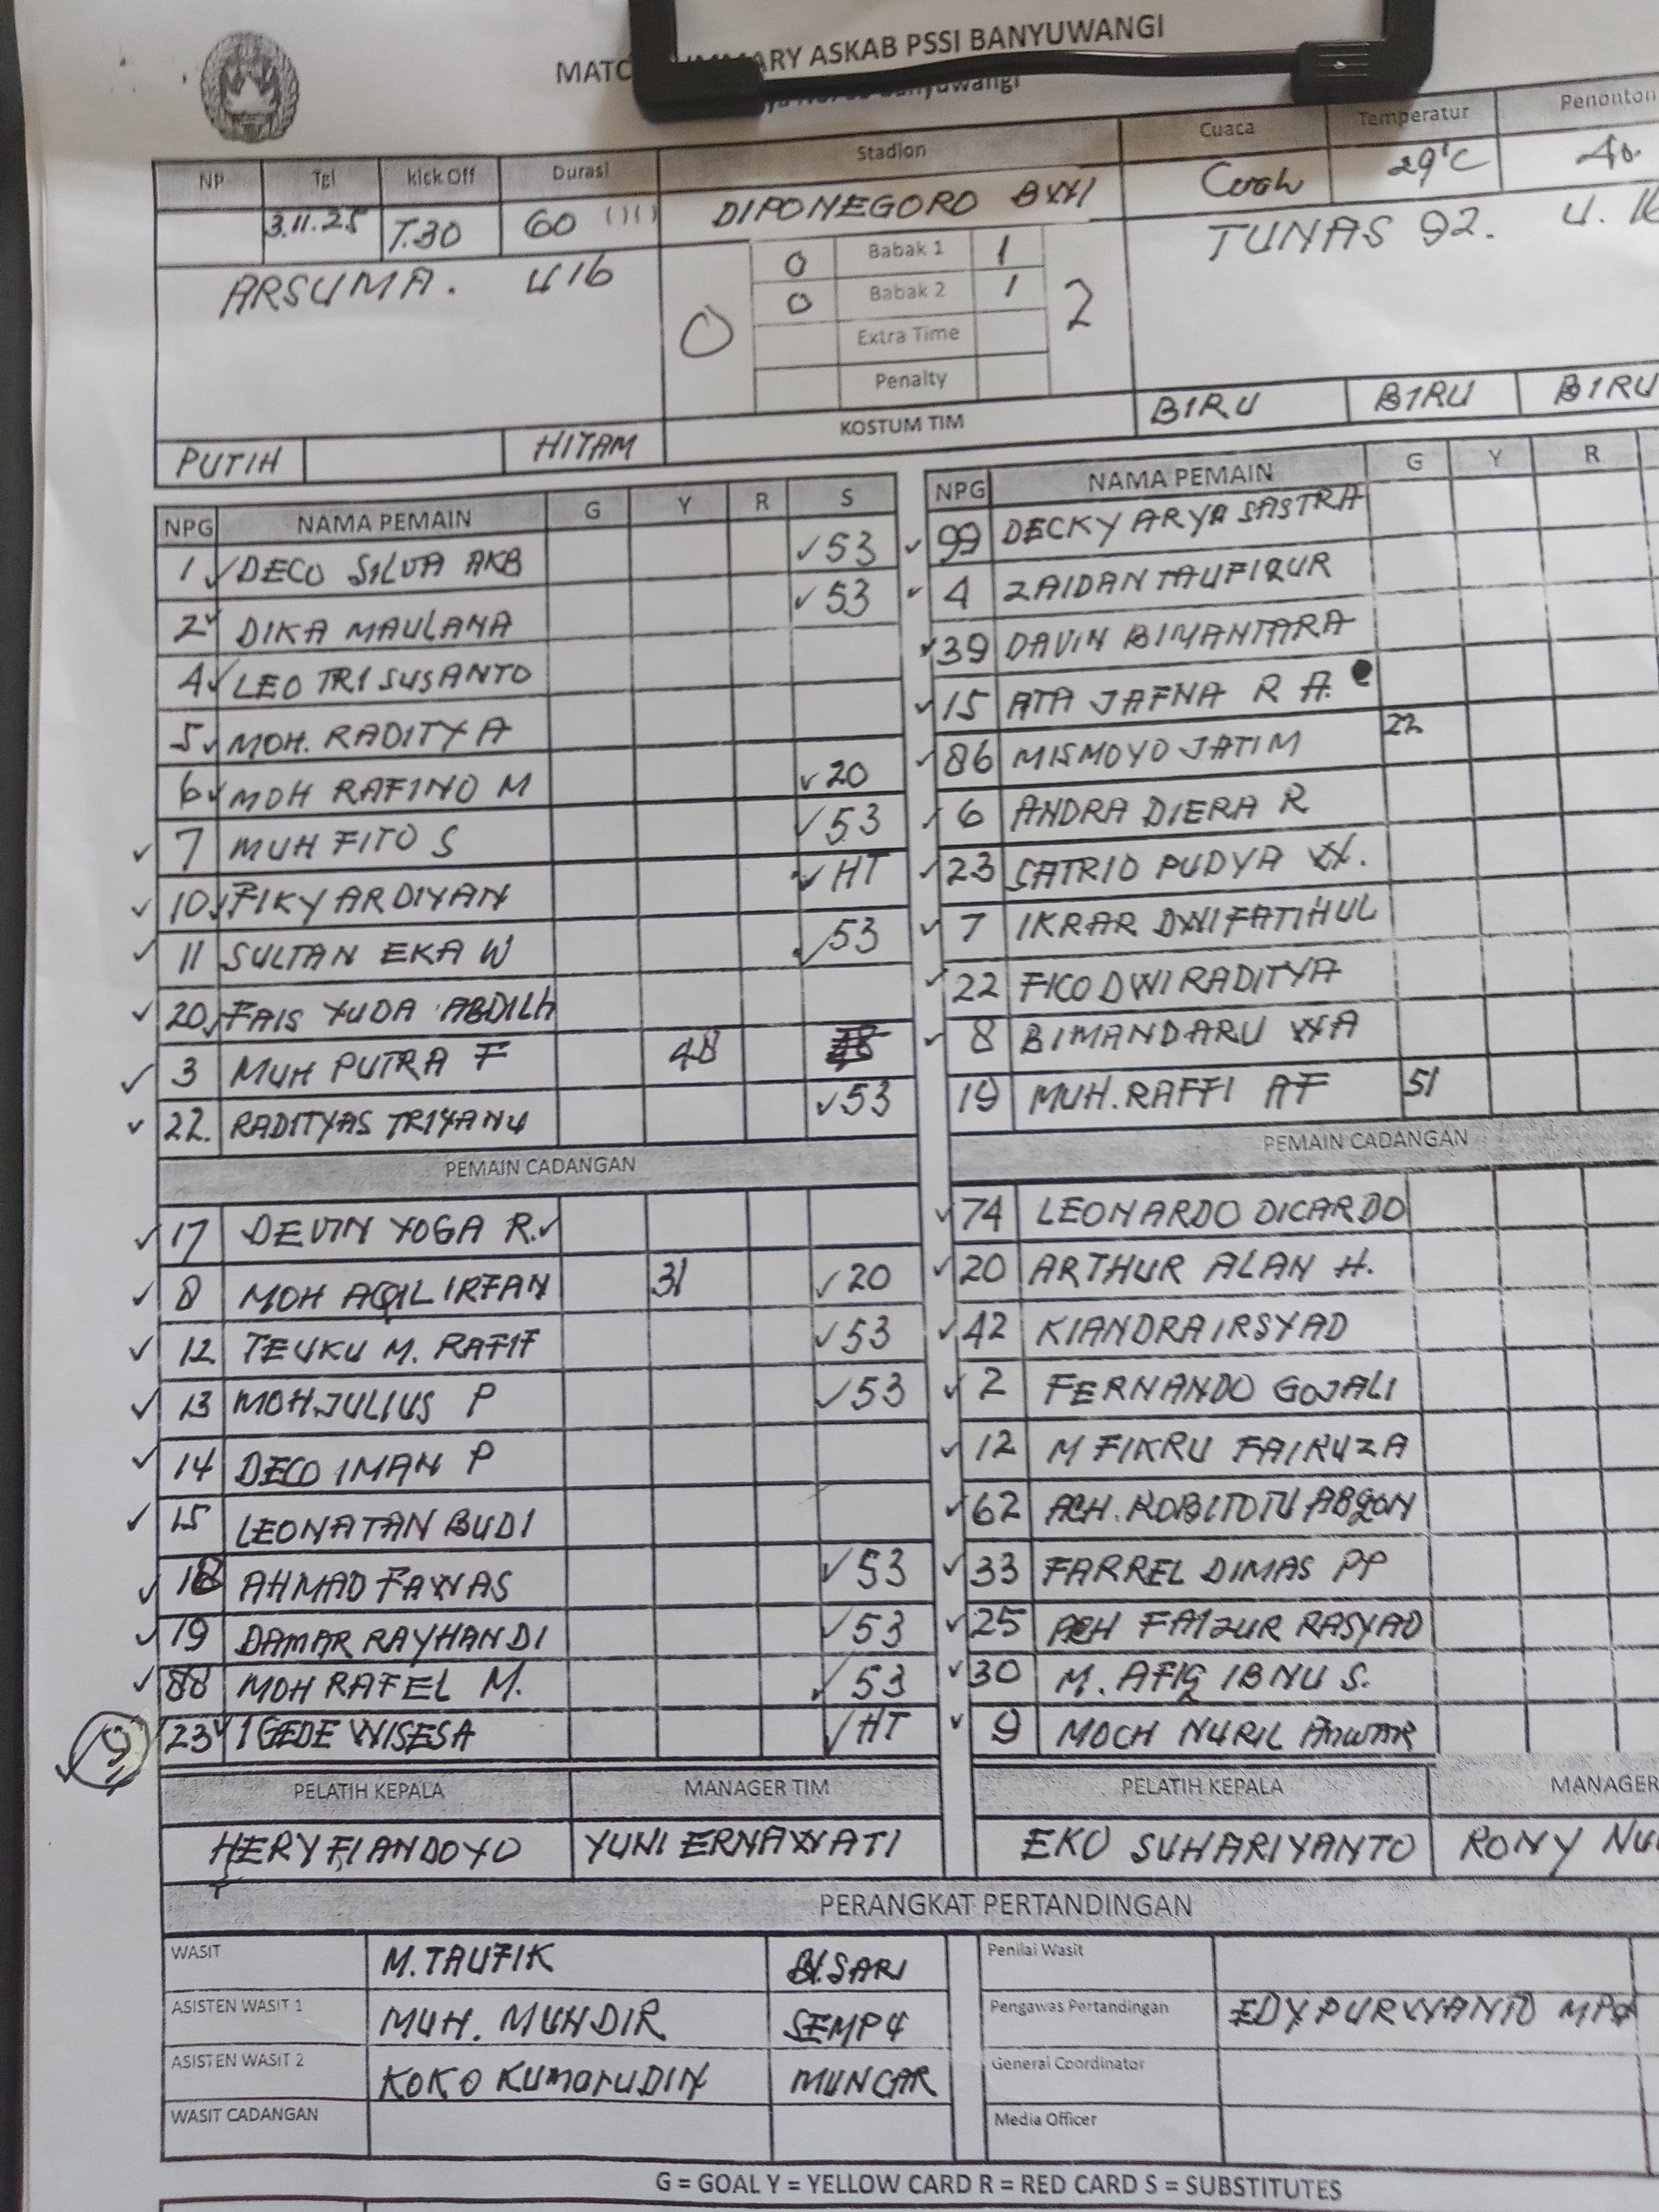 MATC MMARY ASKAB PSSI BANYUWANGI
Banyuwangi
NP Tgl Kick Off Durasi Stadion Cuaca Temperatur Penonton
3.11.25 7.30 60 ( ) ( ) DIPONEGORO BWI 29°C
ARSUMA. U16 TUNAS 92. U.16
0 0 Babak 1 1 2
0 Babak 2 1
Extra Time
Penalty
PUTIH HITAM KOSTUM TIM BIRU BIRU BIRU
NPG NAMA PEMAIN G Y R S
1 DECO SILVA AKB 53
2 DIKA MAULANA 53
4 LEO TRI SUSANTO
5 MOH. RADITYA A
6 MOH RAFINO M 20
7 MUH FITO S 53
10 FIKY ARDIYAN HT
11 SULTAN EKA W 53
20 FAIS YUDA ABDILH
3 MUH PUTRA F 48
22. RADITYAS TRIYANU 53
PEMAIN CADANGAN
17 DEVIN YOGA R.
8 MOH AQIL IRFAN 31 20
12 TEUKU M. RAFIF 53
13 MOH JULIUS P 53
14 DECO IMAN P
15 LEONATAN BUDI
18 AHMAD FAWAS 53
19 DAMAR RAYHAN DI 53
88 MOH RAFEL M. 53
9 23 I GEDE WISESA HT
PELATIH KEPALA MANAGER TIM
HERY FIANDOYO YUNI ERNAWATI
NPG NAMA PEMAIN G Y R
99 DECKY ARYA SASTRA
4 ZAIDAN TAUFIQUR
39 DAVIN BIMANTARA
15 ATA JAFNA R A.
86 MISMOYO JATIM 22
6 ANDRA DIERA R
23 SATRIO PUDYA W.
7 IKRAR DWI FATIHUL
22 FICO DWI RADITYA
8 BIMANDARU WA
19 MUH. RAFFI AF 51
PEMAIN CADANGAN
74 LEONARDO DICARDO
20 ARTHUR ALAN H.
42 KIANDRA IRSYAD
2 FERNANDO GOJALI
12 M FIKRU FAIRUZA
62 ACH.
33 FARREL DIMAS PP
25 ACH FAIZUR RASYAD
30 M. AFIQ IBNU S.
9 MOCH NURIL ANWAR
PELATIH KEPALA MANAGER
EKO SUHARIYANTO RONY NU
PERANGKAT PERTANDINGAN
WASIT M.TAUFIK BL.SARI
ASISTEN WASIT 1 MUH. MUHDIR SEMPU
ASISTEN WASIT 2 KOKO KUMARUDIN MUNCAR
WASIT CADANGAN
Penilai Wasit
Pengawas Pertandingan EDY PURWANTO
General Coordinator
Media Officer
G = GOAL Y = YELLOW CARD R = RED CARD S = SUBSTITUTES